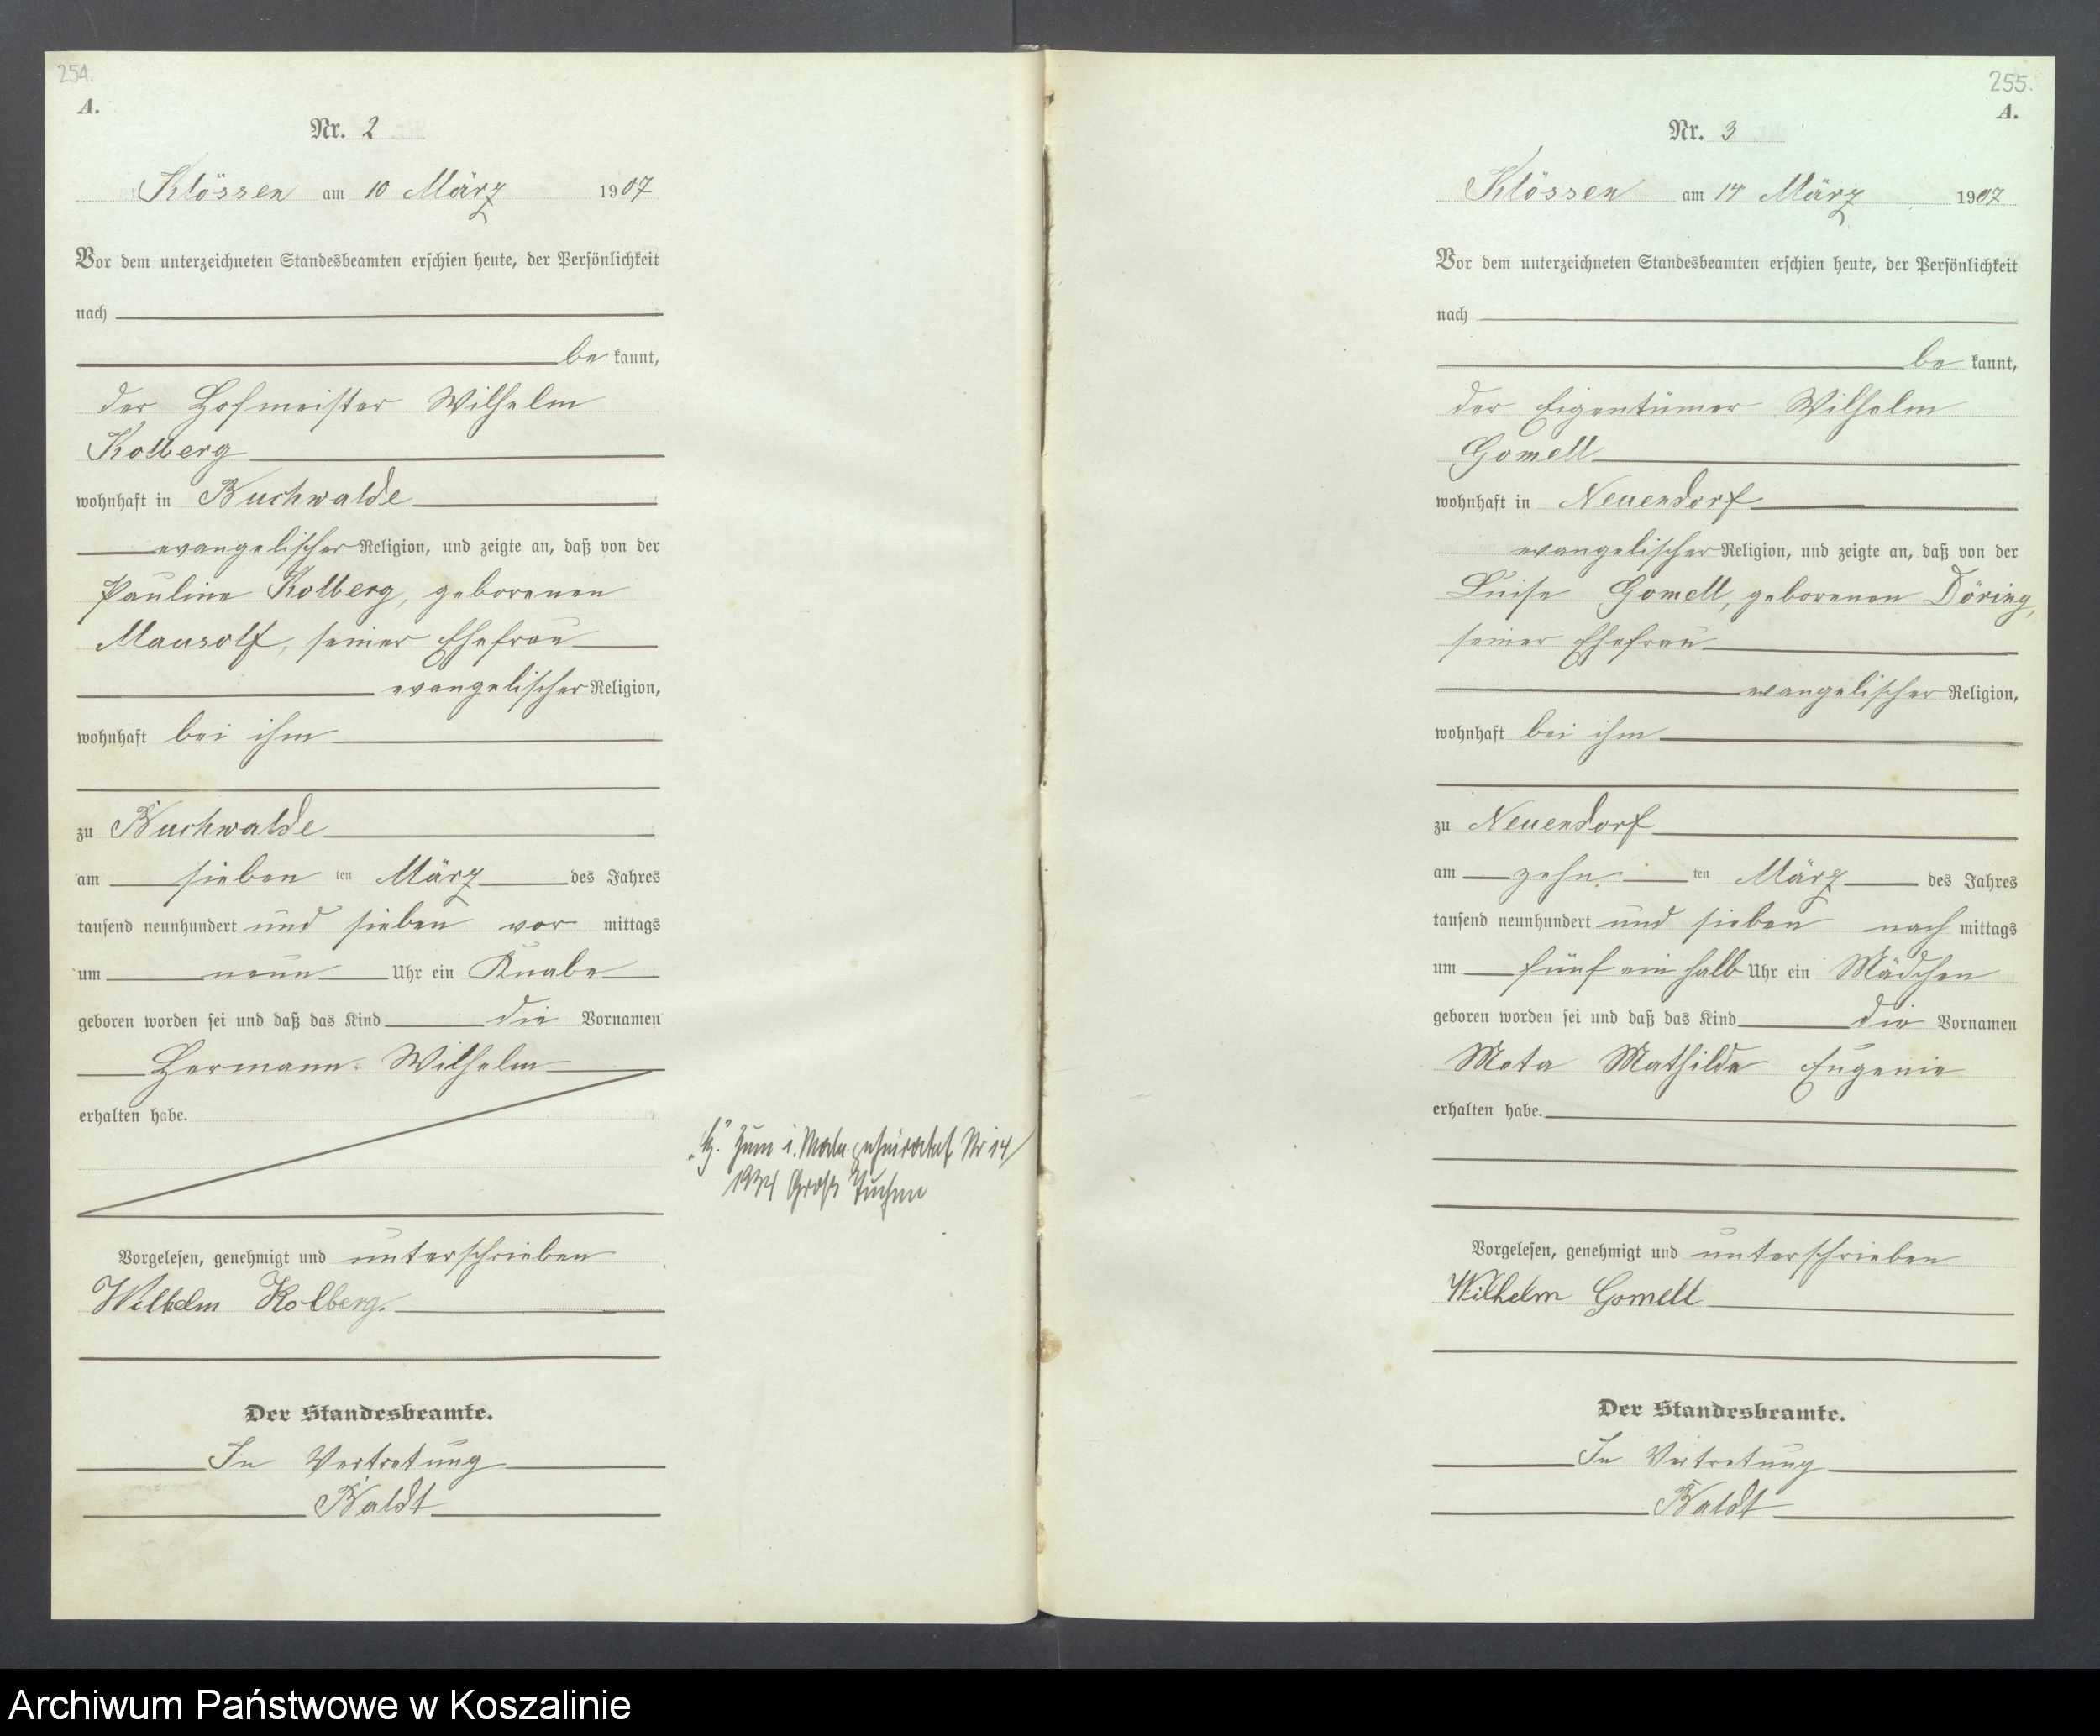 254.
A.
Nr. 2
Klössen am 10 März 1907
Vor dem unterzeichneten Standesbeamten erschien heute, der Persönlichkeit
nach
be kannt,
der Hofmeister Wilhelm
Kolberg
wohnhaft in Buchwalde
evangelischer Religion, und zeigte an, daß von der
Pauline Kolberg, geborenen
Maurolf, seiner Ehefrau
evangelischer Religion,
wohnhaft bei ihm
zu Buchwalde
am sieben ten März des Jahres
tausend neunhundert und sieben vor mittags
um neun Uhr ein Knabe
geboren worden sei und daß das Kind die Vornamen
Hermann Wilhelm
erhalten habe.
Zum 1. Male geheiratet Nr 14/
1934 Gross Tuchen
Vorgelesen, genehmigt und unterschrieben
Wilhelm Kolberg.
Der Standesbeamte.
In Vertretung
Baldt
255.
A.
Nr. 3
Klössen am 14 März 1907
Vor dem unterzeichneten Standesbeamten erschien heute, der Persönlichkeit
nach
be kannt,
der Eigentümer Wilhelm
Gomell
wohnhaft in Neuendorf
evangelischer Religion, und zeigte an, daß von der
Luise Gomell, geborenen Döring,
seiner Ehefrau
evangelischer Religion,
wohnhaft bei ihm
zu Neuendorf
am zehn ten März des Jahres
tausend neunhundert und sieben nach mittags
um fünf ein halb Uhr ein Mädchen
geboren worden sei und daß das Kind die Vornamen
Meta Mathilde Eugenie
erhalten habe.
Vorgelesen, genehmigt und unterschrieben
Wilhelm Gomell
Der Standesbeamte.
In Vertretung
Baldt
Archiwum Państwowe w Koszalinie